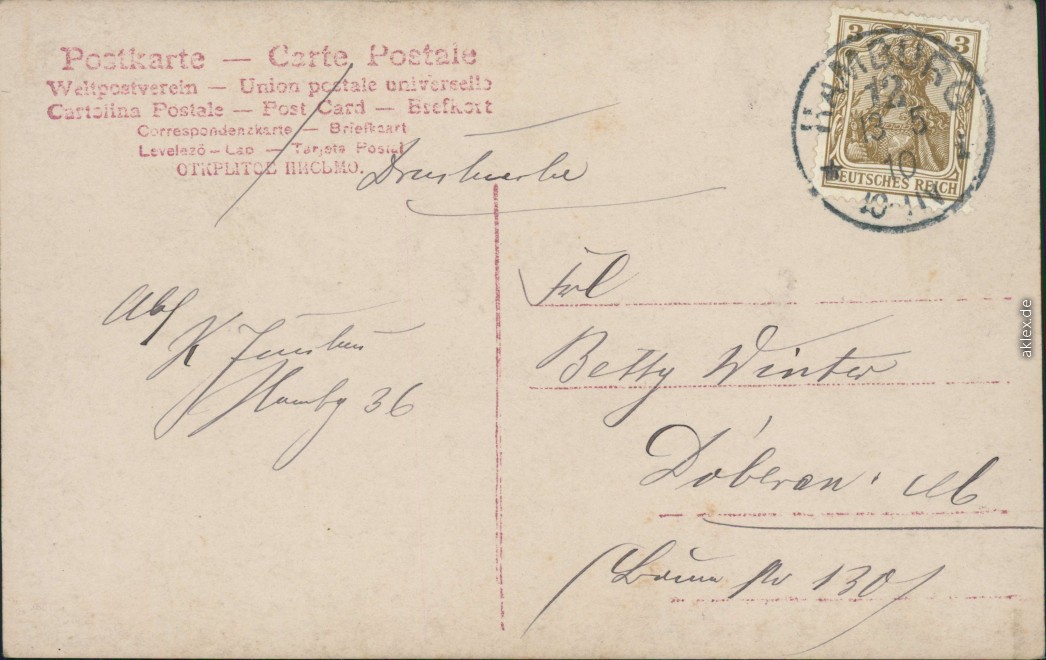 Postkarte — Carte Postale
Weltpostverein — Union postale universelle
Cartolina Postale — Post Card — Brefkort
Correspondenzkarte — Briefkaart
Levelező-Lap — Tarjeta Postal
ОТКРЫТОЕ ПИСЬМО.
Drucksache
3 3
DEUTSCHES REICH
HAMBURG
12
13 5
10
10-11V
Abs
K
Hambg 36
Frl
Betty Winter
Doberan. M
(Baum Str 130)
aklex.de